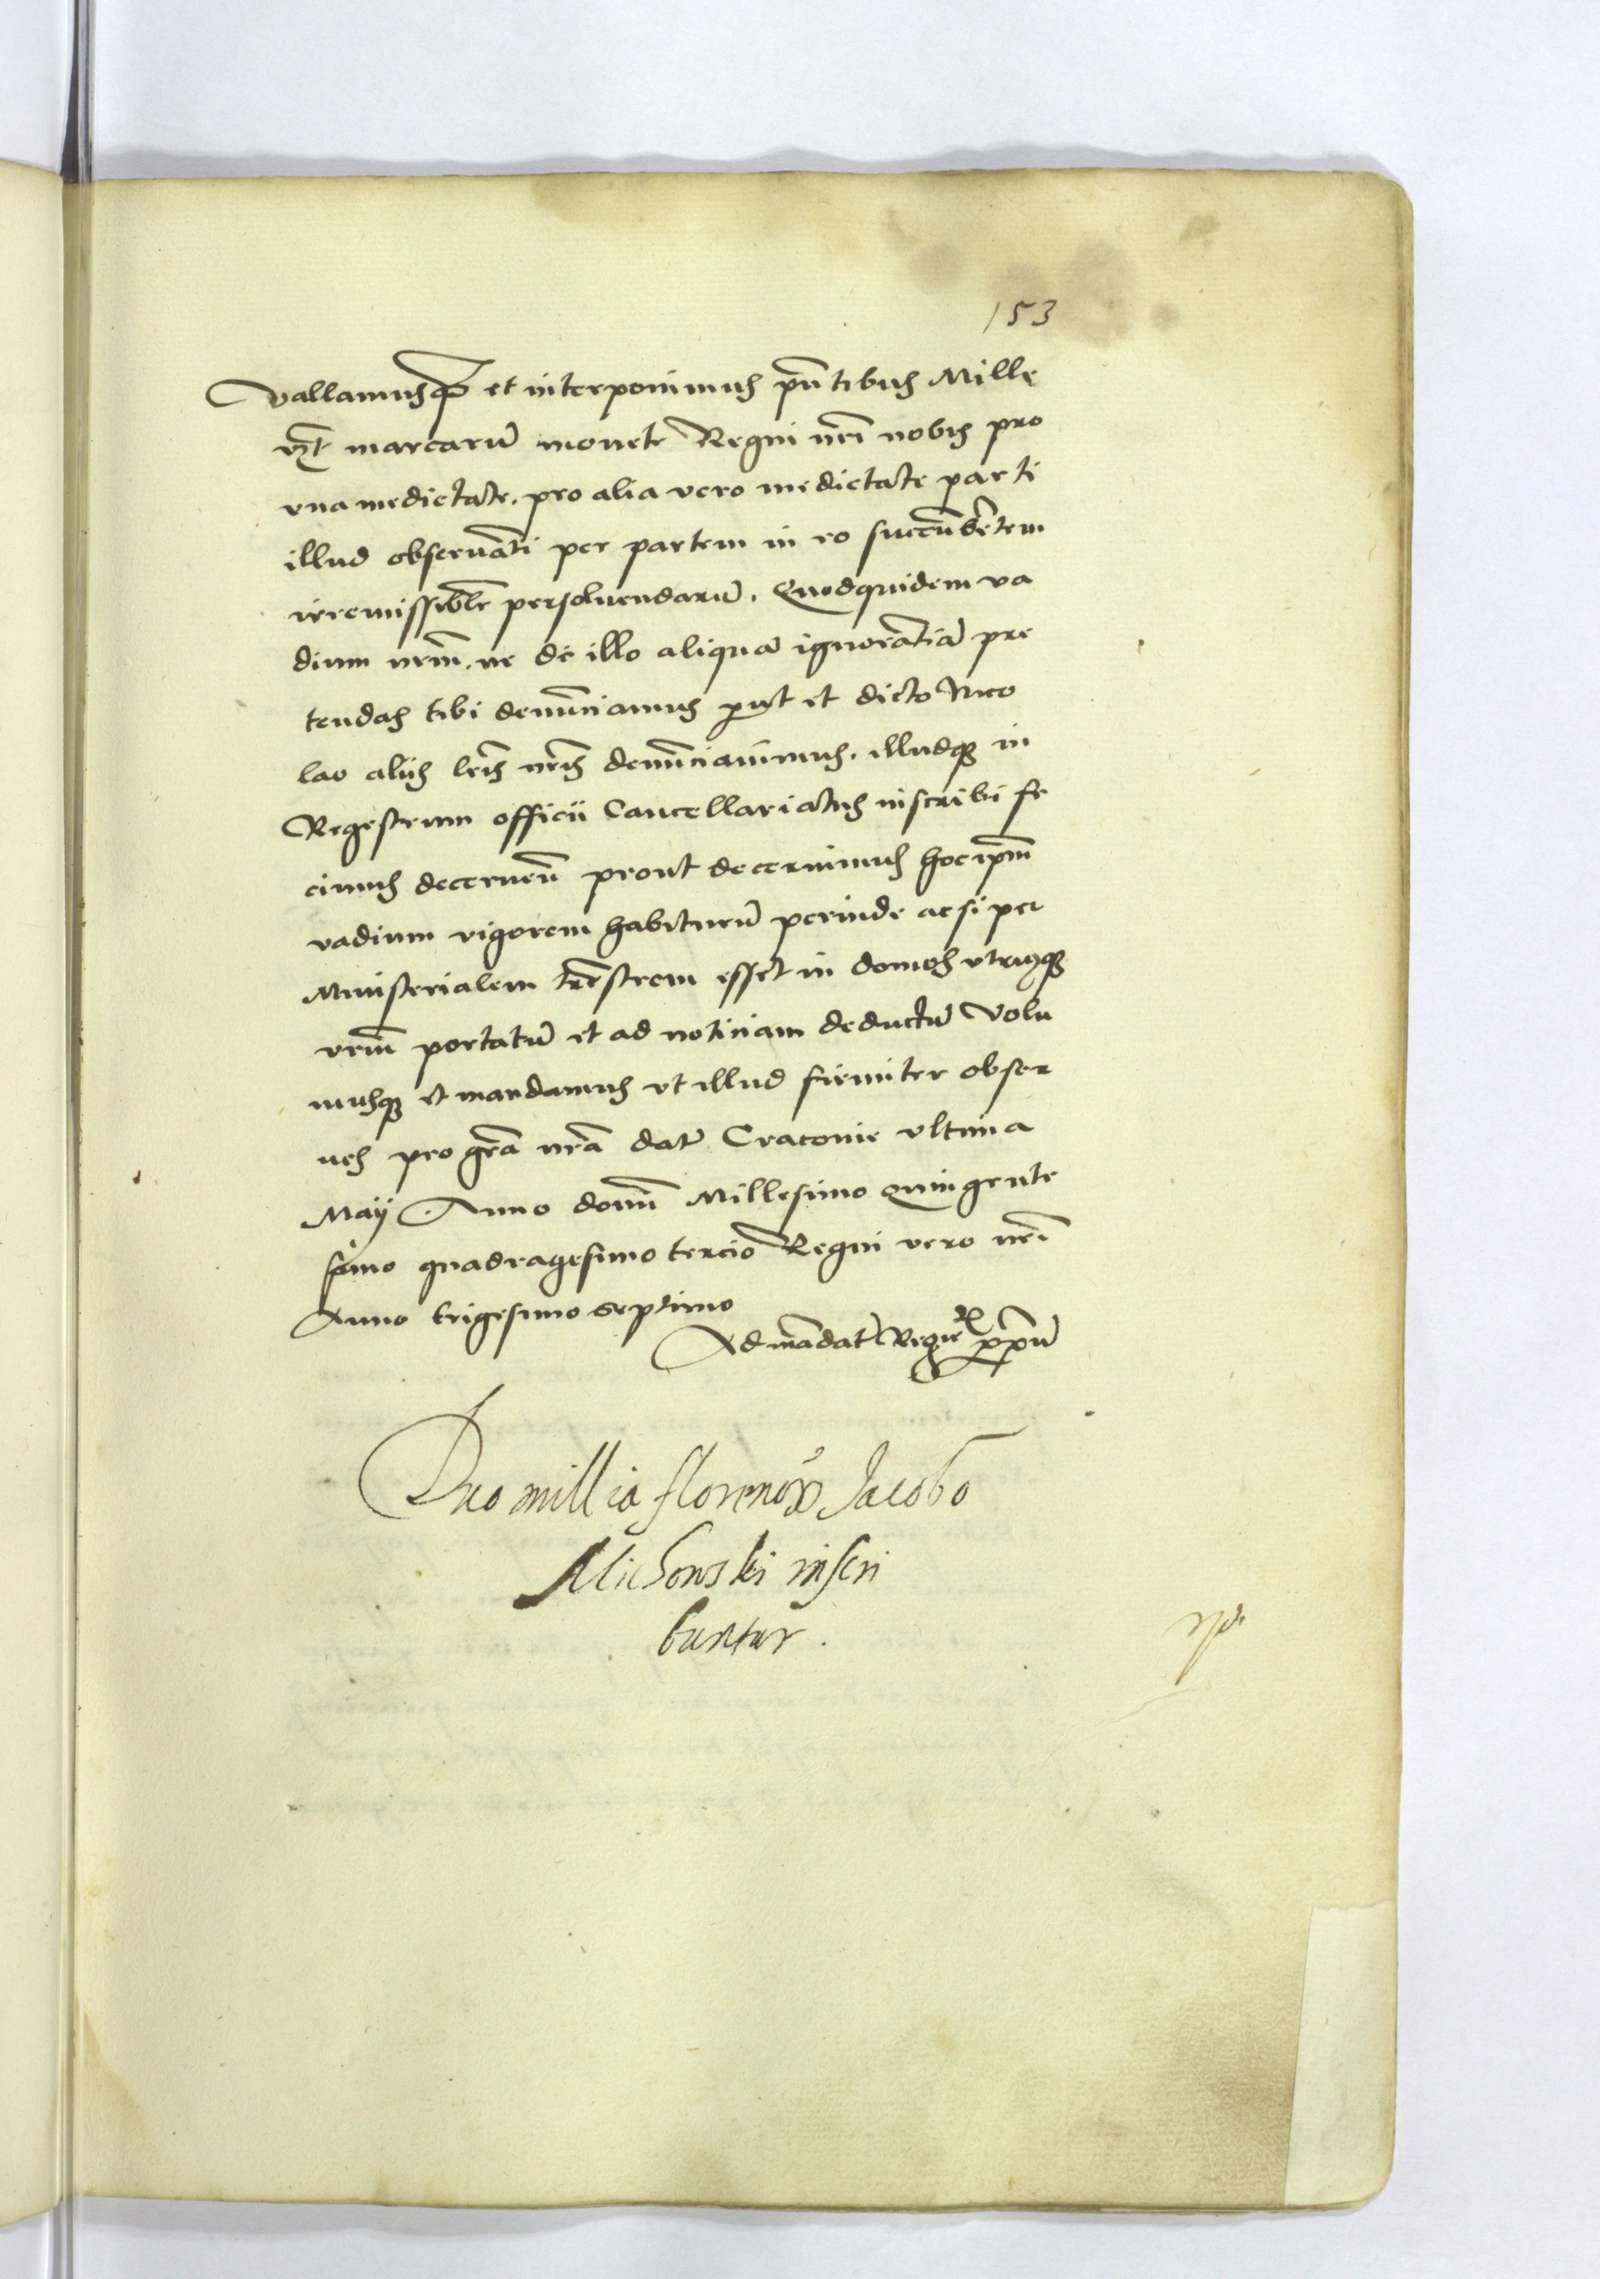 153
Vallamusq̃ et interponimus p̃ntibus Mille
vz̃t marcarũ monete Regni nr̃i nobis pro
vna medietate, pro alia vero medietate parti
illud obseruãti per partem in eo succũbẽtem
irremissiblr̃ persoluendarũ. Quodquidem va
dium nr̃m. ne de illo aliquã ignorãtiã pre
tendas tibi denũciamus put et dicto Nico
lao alijs lr̃is nr̃is denũciauimus, illudq3 in
Regestrum officii Cancellariatus inscribi fe
cimus decernen̄ prout decernimus hoc ip̃m
vadium vigorem habiturũ perinde ac si per
Ministerialem tr̃estrem esset in domos vtriusq3
vr̃m portatũ et ad noticiam deductũ Volu
musq3 et mandamus vt illud firmiter obser
ues pro gr̃a nr̃a dat̃ Cracovie vltima
Maij Anno domĩ Millesimo Quingente
simo quadragesimo tercio Regni vero nr̃i
Anno trigesimo septimo
Ad mãdat̃ Regie
Duo millia florenor Jacobo
Michowski inscri
buntur.